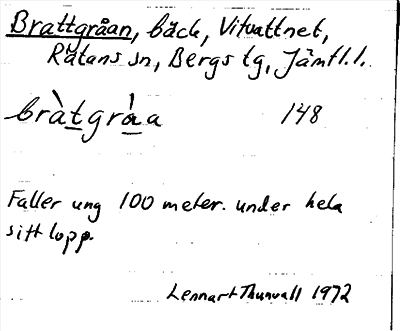 Brattgråan, bäck, Vitvattnet,
Rätans sn, Bergs tg, Jämtl. l.
bràtgràa 148
Faller ung 100 meter. under hela
sitt lopp.
Lennart Thunvall 1972